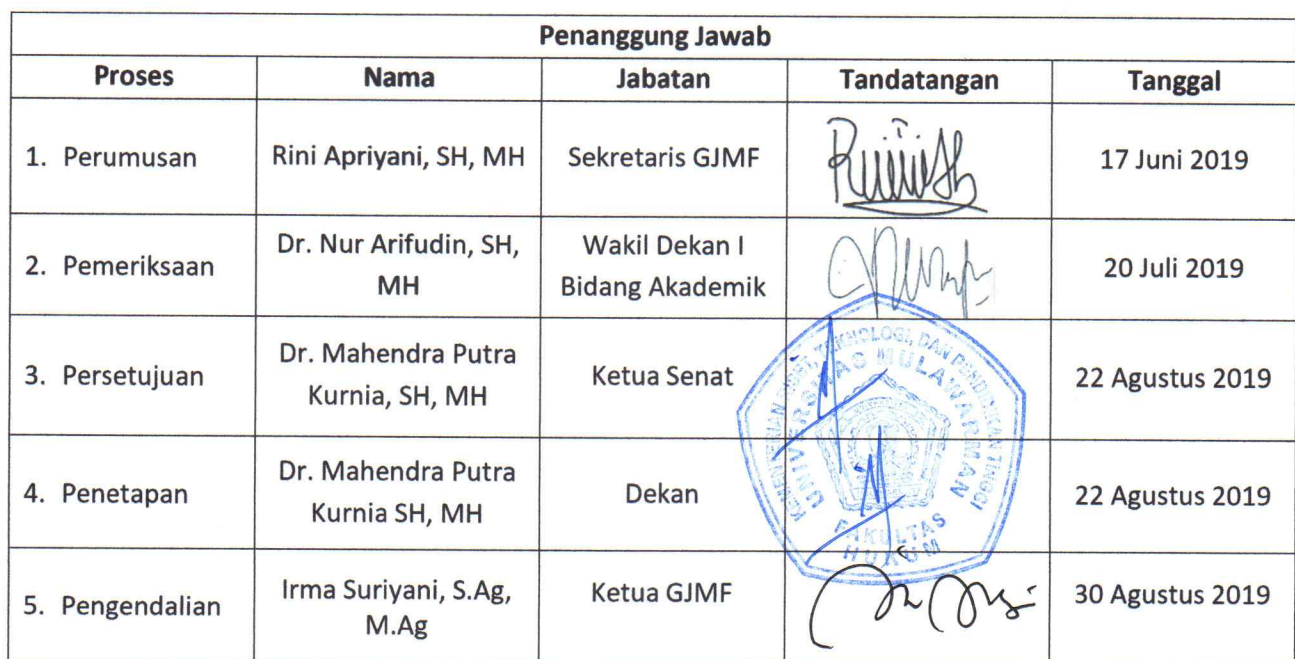 Penanggung Jawab
Proses Nama Jabatan Tandatangan Tanggal
1. Perumusan Rini Apriyani, SH, MH Sekretaris GJMF 17 Juni 2019
2. Pemeriksaan Dr. Nur Arifudin, SH, MH Wakil Dekan I Bidang Akademik 20 Juli 2019
3. Persetujuan Dr. Mahendra Putra Kurnia, SH, MH Ketua Senat 22 Agustus 2019
4. Penetapan Dr. Mahendra Putra Kurnia SH, MH Dekan 22 Agustus 2019
5. Pengendalian Irma Suriyani, S.Ag, M.Ag Ketua GJMF 30 Agustus 2019
KEMENTERIAN RISET, TEKNOLOGI, DAN PENDIDIKAN TINGGI
UNIVERSITAS MULAWARMAN
FAKULTAS
HUKUM